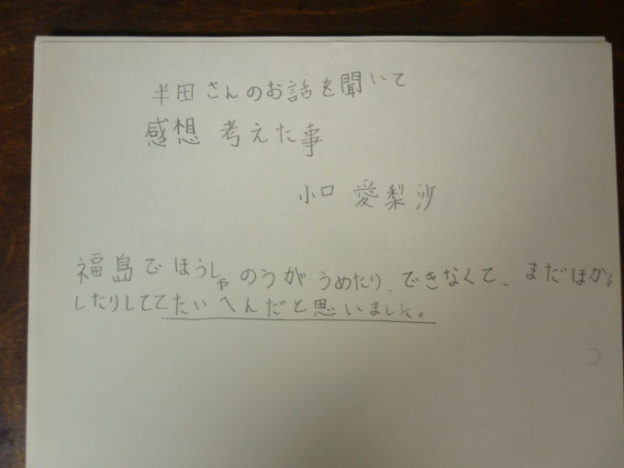 半田さんのお話を聞いて
感想 考えた事
小口 愛梨沙
福島でほうしゃのうが うめたり、できなくて、まだほかん
したりしててたいへんだと思いました。